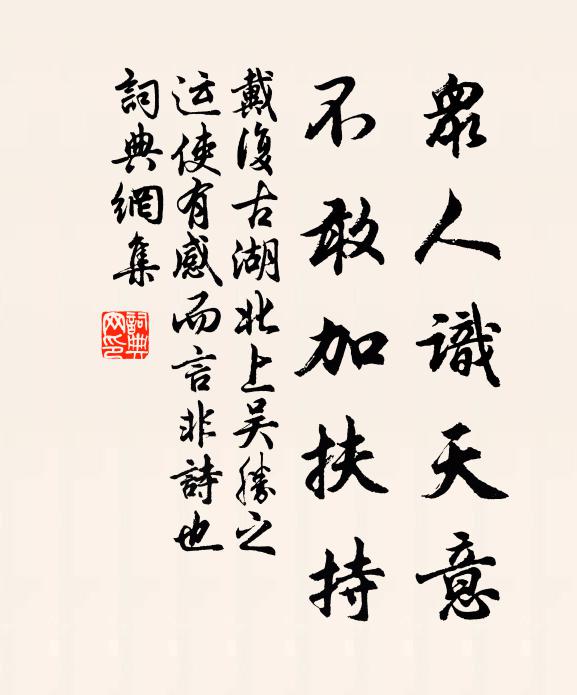 眾人識天意
不敢加扶持
戴復古湖北上吴勝之
运使有感而言非詩也
詞典網集
詞典
网印